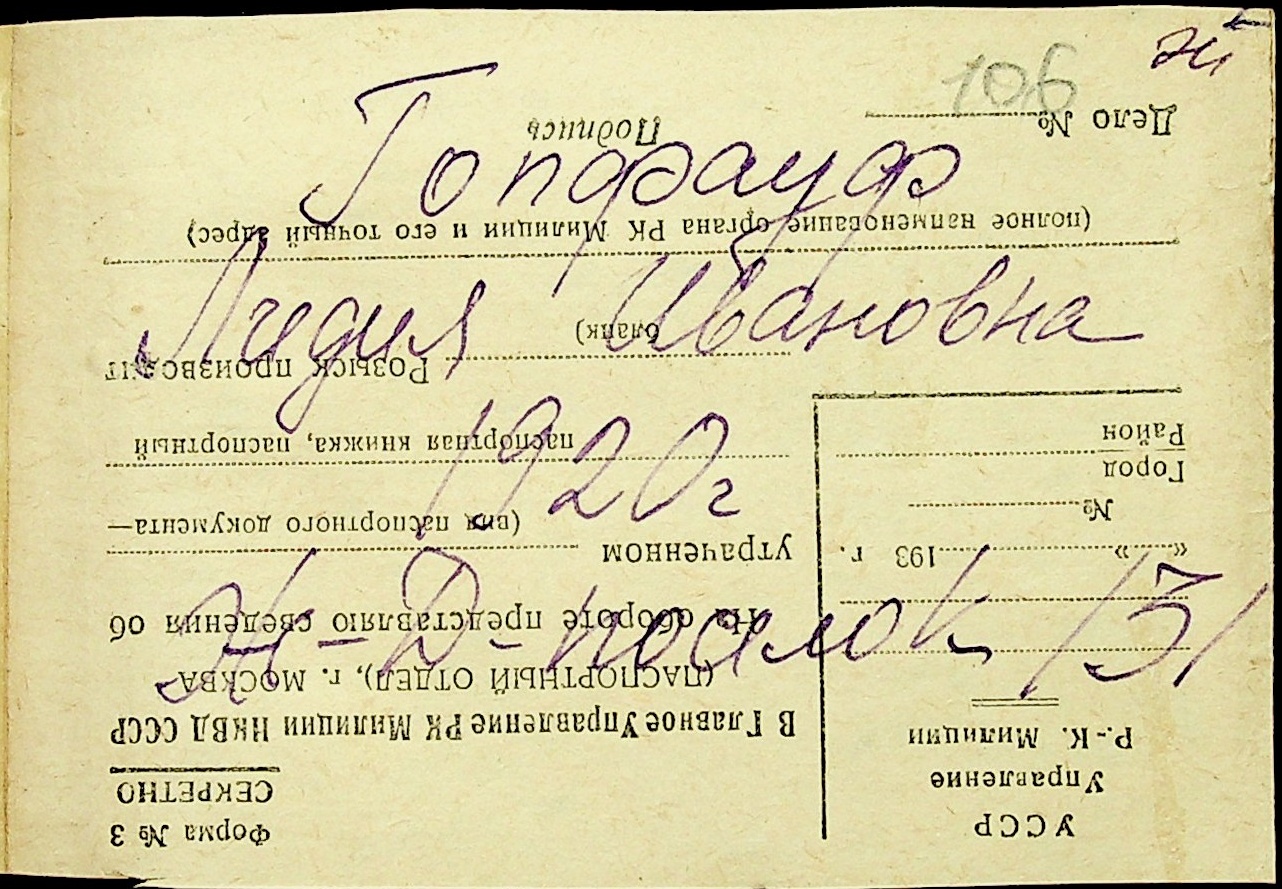 106
Гопфауф
Лидия Ивановна
1920 г
Форма № 3
СЕКРЕТНО
УССР
Управление
Р.-К. Милиции
В Главное Управление РК Милиции НКВД СССР
(ПАСПОРТНЫЙ ОТДЕЛ), г. МОСКВА
На обороте представляю сведения об
утраченном
(вид паспортного документа—
паспортная книжка, паспортный
бланк)
« » 193 г.
№
Город
Район
Розыск производит
(полное наименование органа РК Милиции и его точный адрес)
Дело №
Подпись